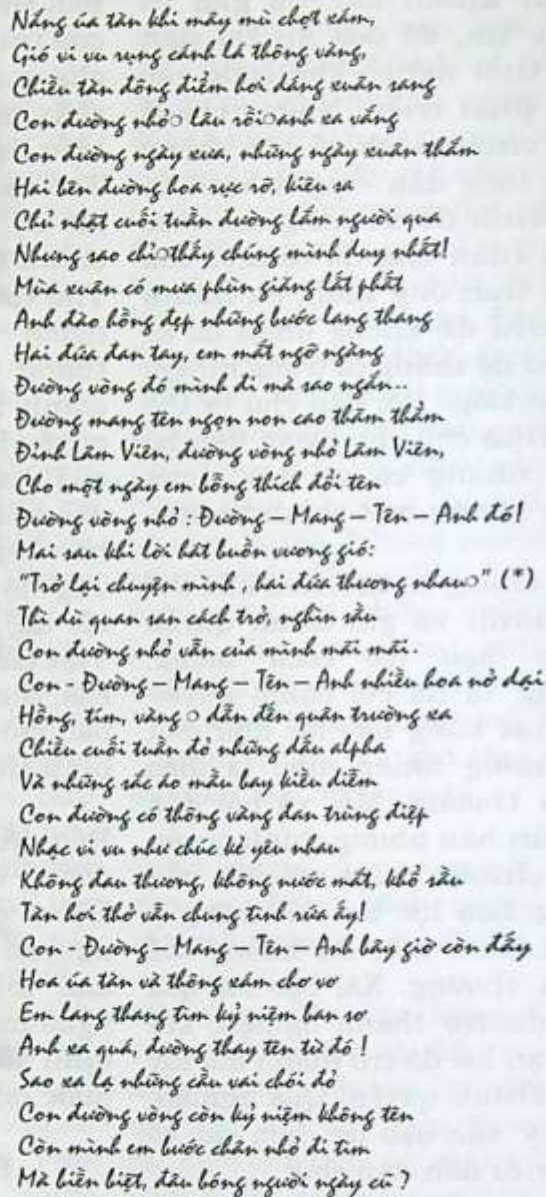 Nắng úa tàn khi mây mù chợt xám,
Gió vi vu rung cánh lá thông vàng,
Chiều tàn đông điểm hơi dáng xuân sang
Con đường nhỏↄ lâu rồiↄanh xa vắng
Con đường ngày xưa, những ngày xuân thắm
Hai bên đường hoa rực rỡ, kiêu sa
Chủ nhật cuối tuần đường lắm người qua
Nhưng sao chỉↄthấy chúng mình duy nhất!
Mùa xuân có mưa phùn giăng lất phất
Anh đào hồng đẹp những bước lang thang
Hai đứa đan tay, em mắt ngỡ ngàng
Đường vòng đó mình đi mà sao ngắn..
Đường mang tên ngọn non cao thăm thẳm
Đỉnh Lâm Viên, đường vòng nhỏ Lâm Viên,
Cho một ngày em bỗng thích đổi tên
Đường vòng nhỏ : Đường – Mang – Tên – Anh đó!
Mai sau khi lời hát buồn vương gió:
"Trở lại chuyện mình , hai đứa thương nhauↄ" (*)
Thì dù quan san cách trở, nghìn sầu
Con đường nhỏ vẫn của mình mãi mãi.
Con - Đường – Mang – Tên – Anh nhiều hoa nở dại
Hồng, tím, vàng ↄ dẫn đến quân trường xa
Chiều cuối tuần đỏ những dấu alpha
Và những sắc áo mầu bay kiều diễm
Con đường có thông vàng đan trùng điệp
Nhạc vi vu như chúc kẻ yêu nhau
Không đau thương, không nước mắt, khổ sầu
Tàn hơi thở vẫn chung tình xưa ấy!
Con - Đường – Mang – Tên – Anh bây giờ còn đấy
Hoa úa tàn và thông xám chơ vơ
Em lang thang tìm kỷ niệm ban sơ
Anh xa quá, đường thay tên từ đó !
Sao xa lạ những cầu vai chói đỏ
Con đường vòng còn kỷ niệm không tên
Còn mình em bước chân nhỏ đi tìm
Mà biền biệt, đâu bóng người ngày cũ ?